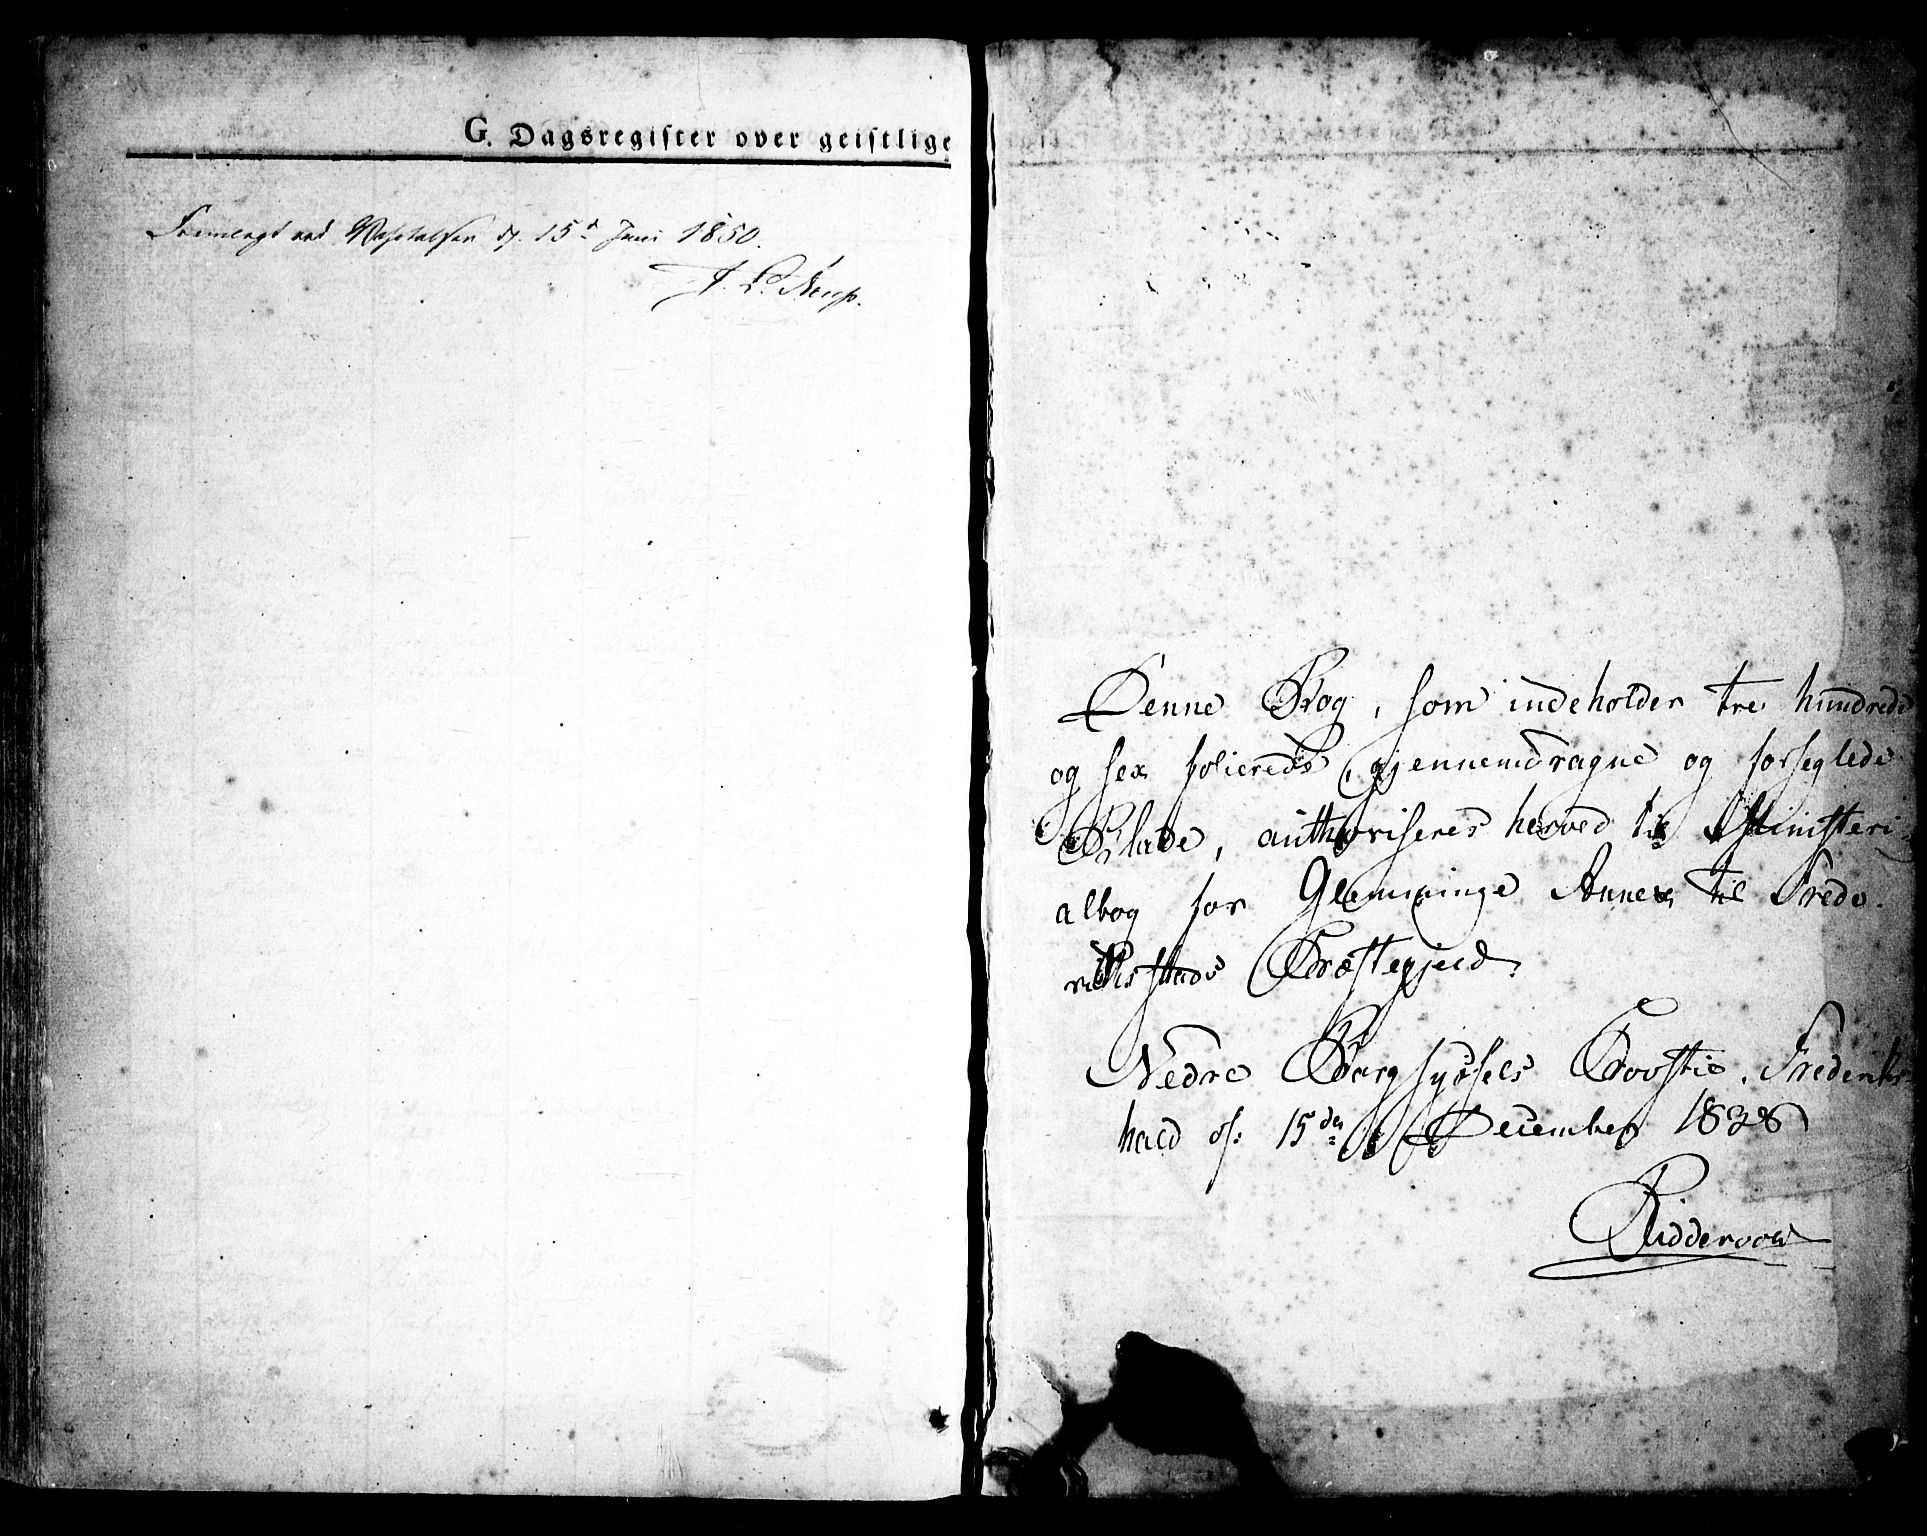 G. Dagsregister over geistlige
Fremlagt ved Visitatsen d. 15d Juni 1850.
Denne Bog, som indeholder tre hundrede
og sex folierede gjennemdragne og forseglede
Blade, authoriseres herved til Ministeri-
albog for Glemminge Annex til Frede-
rikstads Præstegjeld.
Nedre Borgsyssels Provstie, Frederiks-
hald d: 15den December 1838
Riddervold